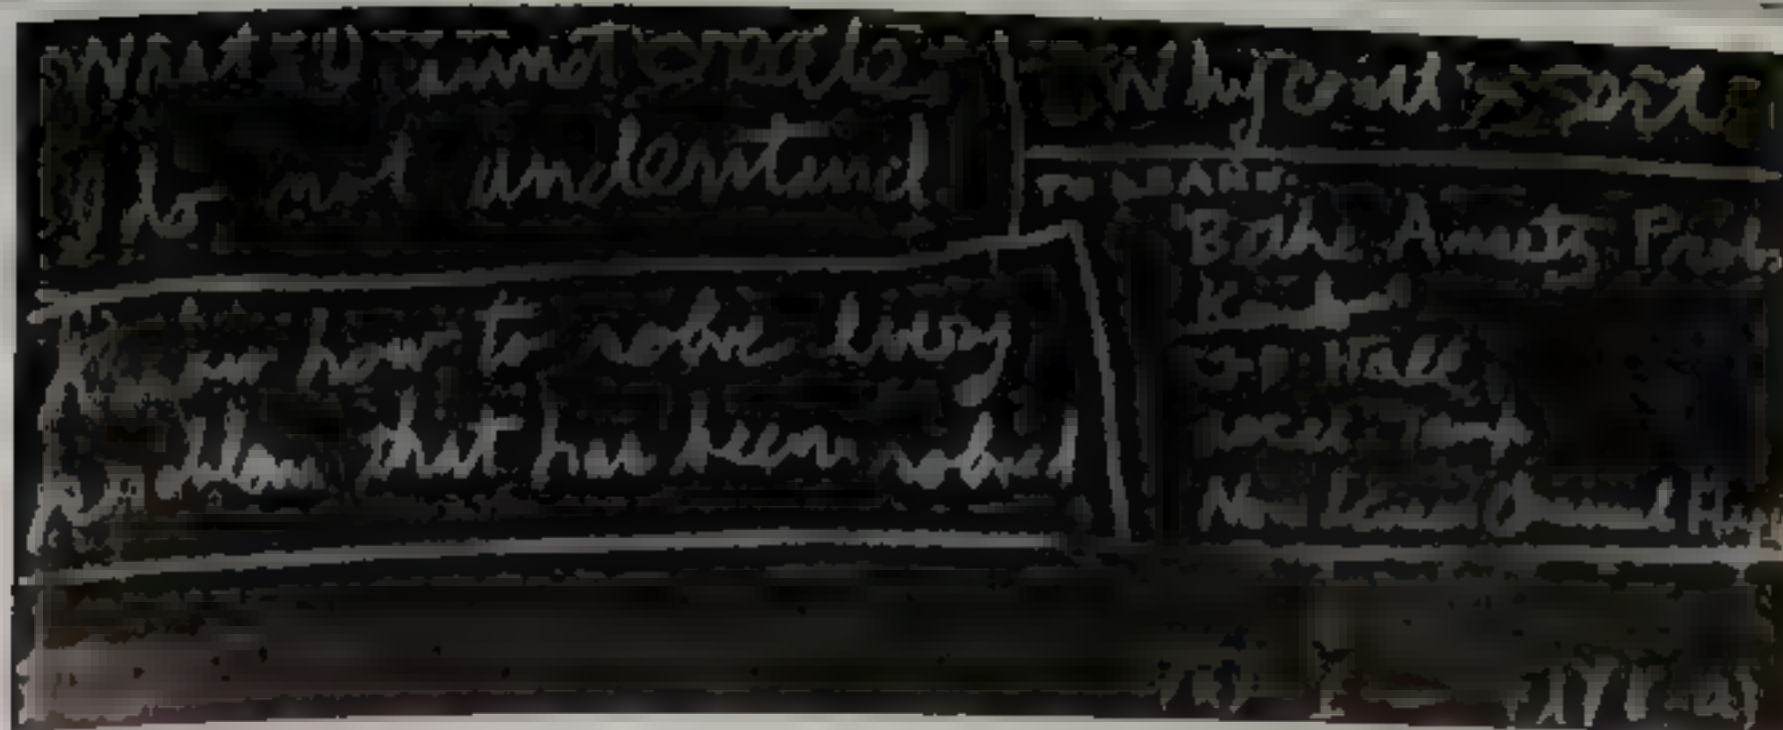 What I cannot create,
I do not understand
Know how to solve every
problem that has been solved
Why const × sort
TO LEARN:
Bethe Ansatz Prob.
Kondo
2-D Hall
accel. Temp
Non Linear Classical Hydro